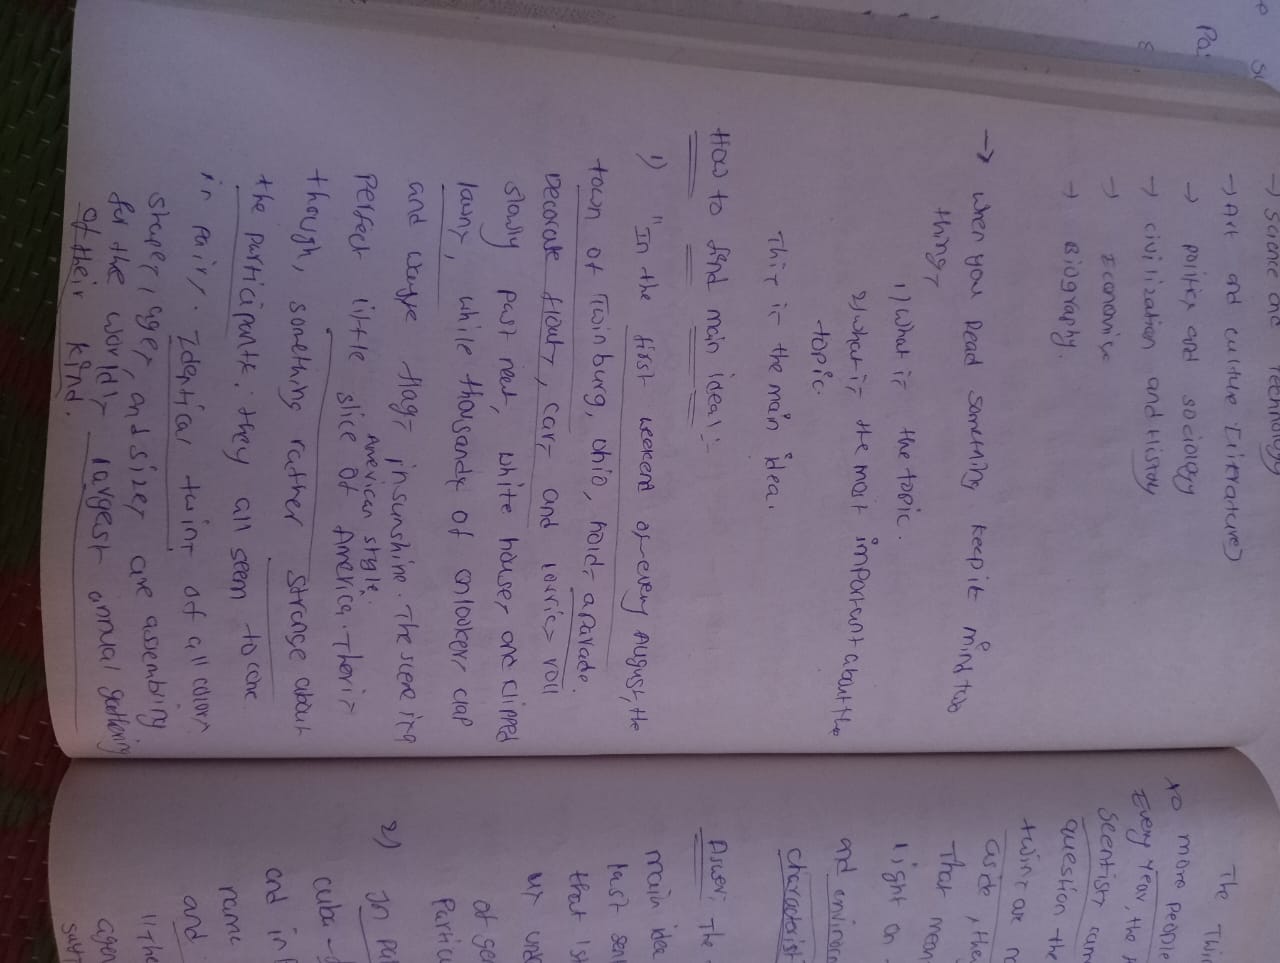 → Science and Technology
→ Art and culture (Literature)
→ politics and sociology
→ civilization and History
→ Economics
→ Biography.
→ when you Read something keep it mind two
things
1) what is the topic.
2) what is the most important about the
topic.
This is the main idea.
How to find main idea :-
1) "In the first weekend of every August, the
town of Twinburg, ohio, holds a parade.
Decorate floats, cars and lorries roll
slowly past neat, white houses and clipped
lawns, while thousands of onlookers clap
and wave flags in sunshine. The scene is a
perfect little slice of America. Theris
American style.
though, something rather strange about
the participants. they all seem to come
in pairs. Identical twins of all colors
shapes, ages, and sizes are assembling
for the world's largest annual gathering
of their kind.
The Twin
to more people
Every year, the
Scientist
question the
twins are
aside, the
That mean
light on
and environ
characterist
Answer: The
main idea
last sen
that is
us un
of ge
Partic
2) In pa
cuba
and in
name
and
"The
again